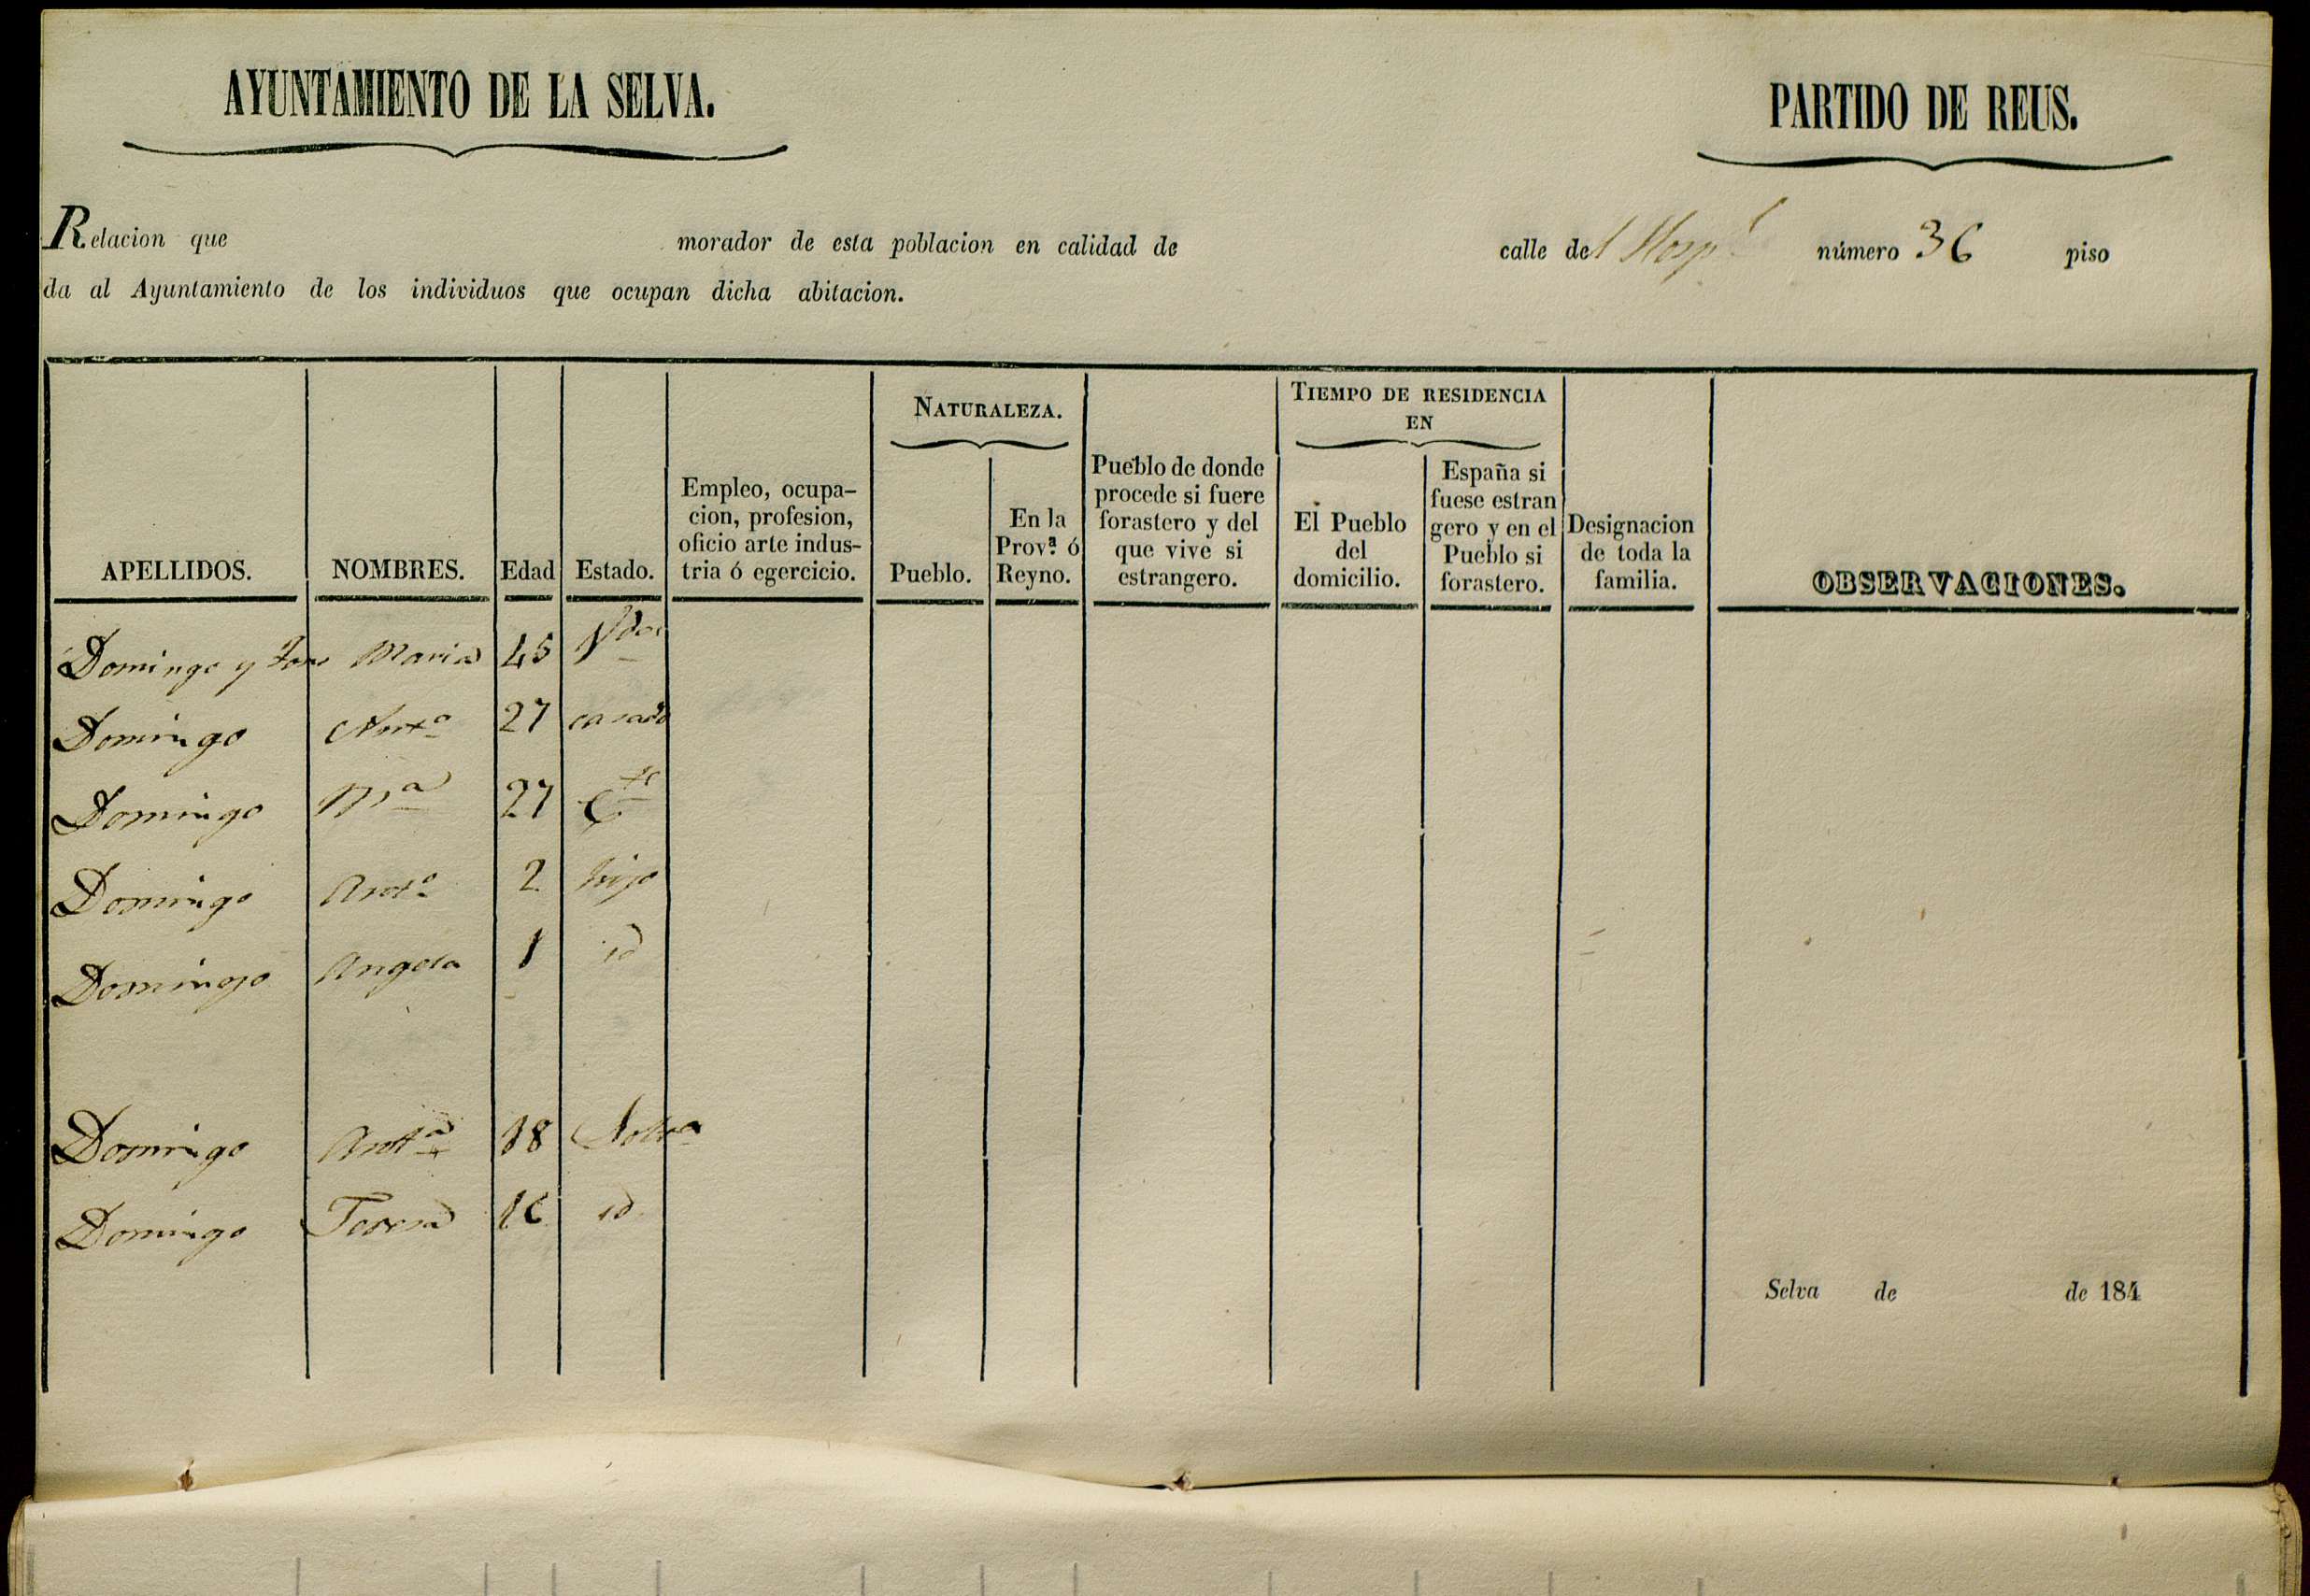 AYUNTAMIENTO DE LA SELVA.
PARTIDO DE REUS.
Relacion que morador de esta poblacion en calidad de calle del Hosp.l número 36 piso
da al Ayuntamiento de los individuos que ocupan dicha abitacion.
NATURALEZA.
TIEMPO DE RESIDENCIA
EN
APELLIDOS.
NOMBRES.
Edad
Estado.
Empleo, ocupa-
cion, profesion,
oficio arte indus-
tria ó egercicio.
Pueblo.
En la
Prov.ª ó
Reyno.
Pueblo de donde
procede si fuere
forastero y del
que vive si
estrangero.
El Pueblo
del
domicilio.
España si
fuese estran
gero y en el
Pueblo si
forastero.
Designacion
de toda la
familia.
OBSERVACIONES.
Domingo y Maria 45 Vda
Domingo Anto 27 casado
Domingo Ma 27
Domingo Anto 2 hijo
Domingo Angela 1 id
Domingo Anta 18 Soltra
Domingo Teresa 16 id
Selva de de 184